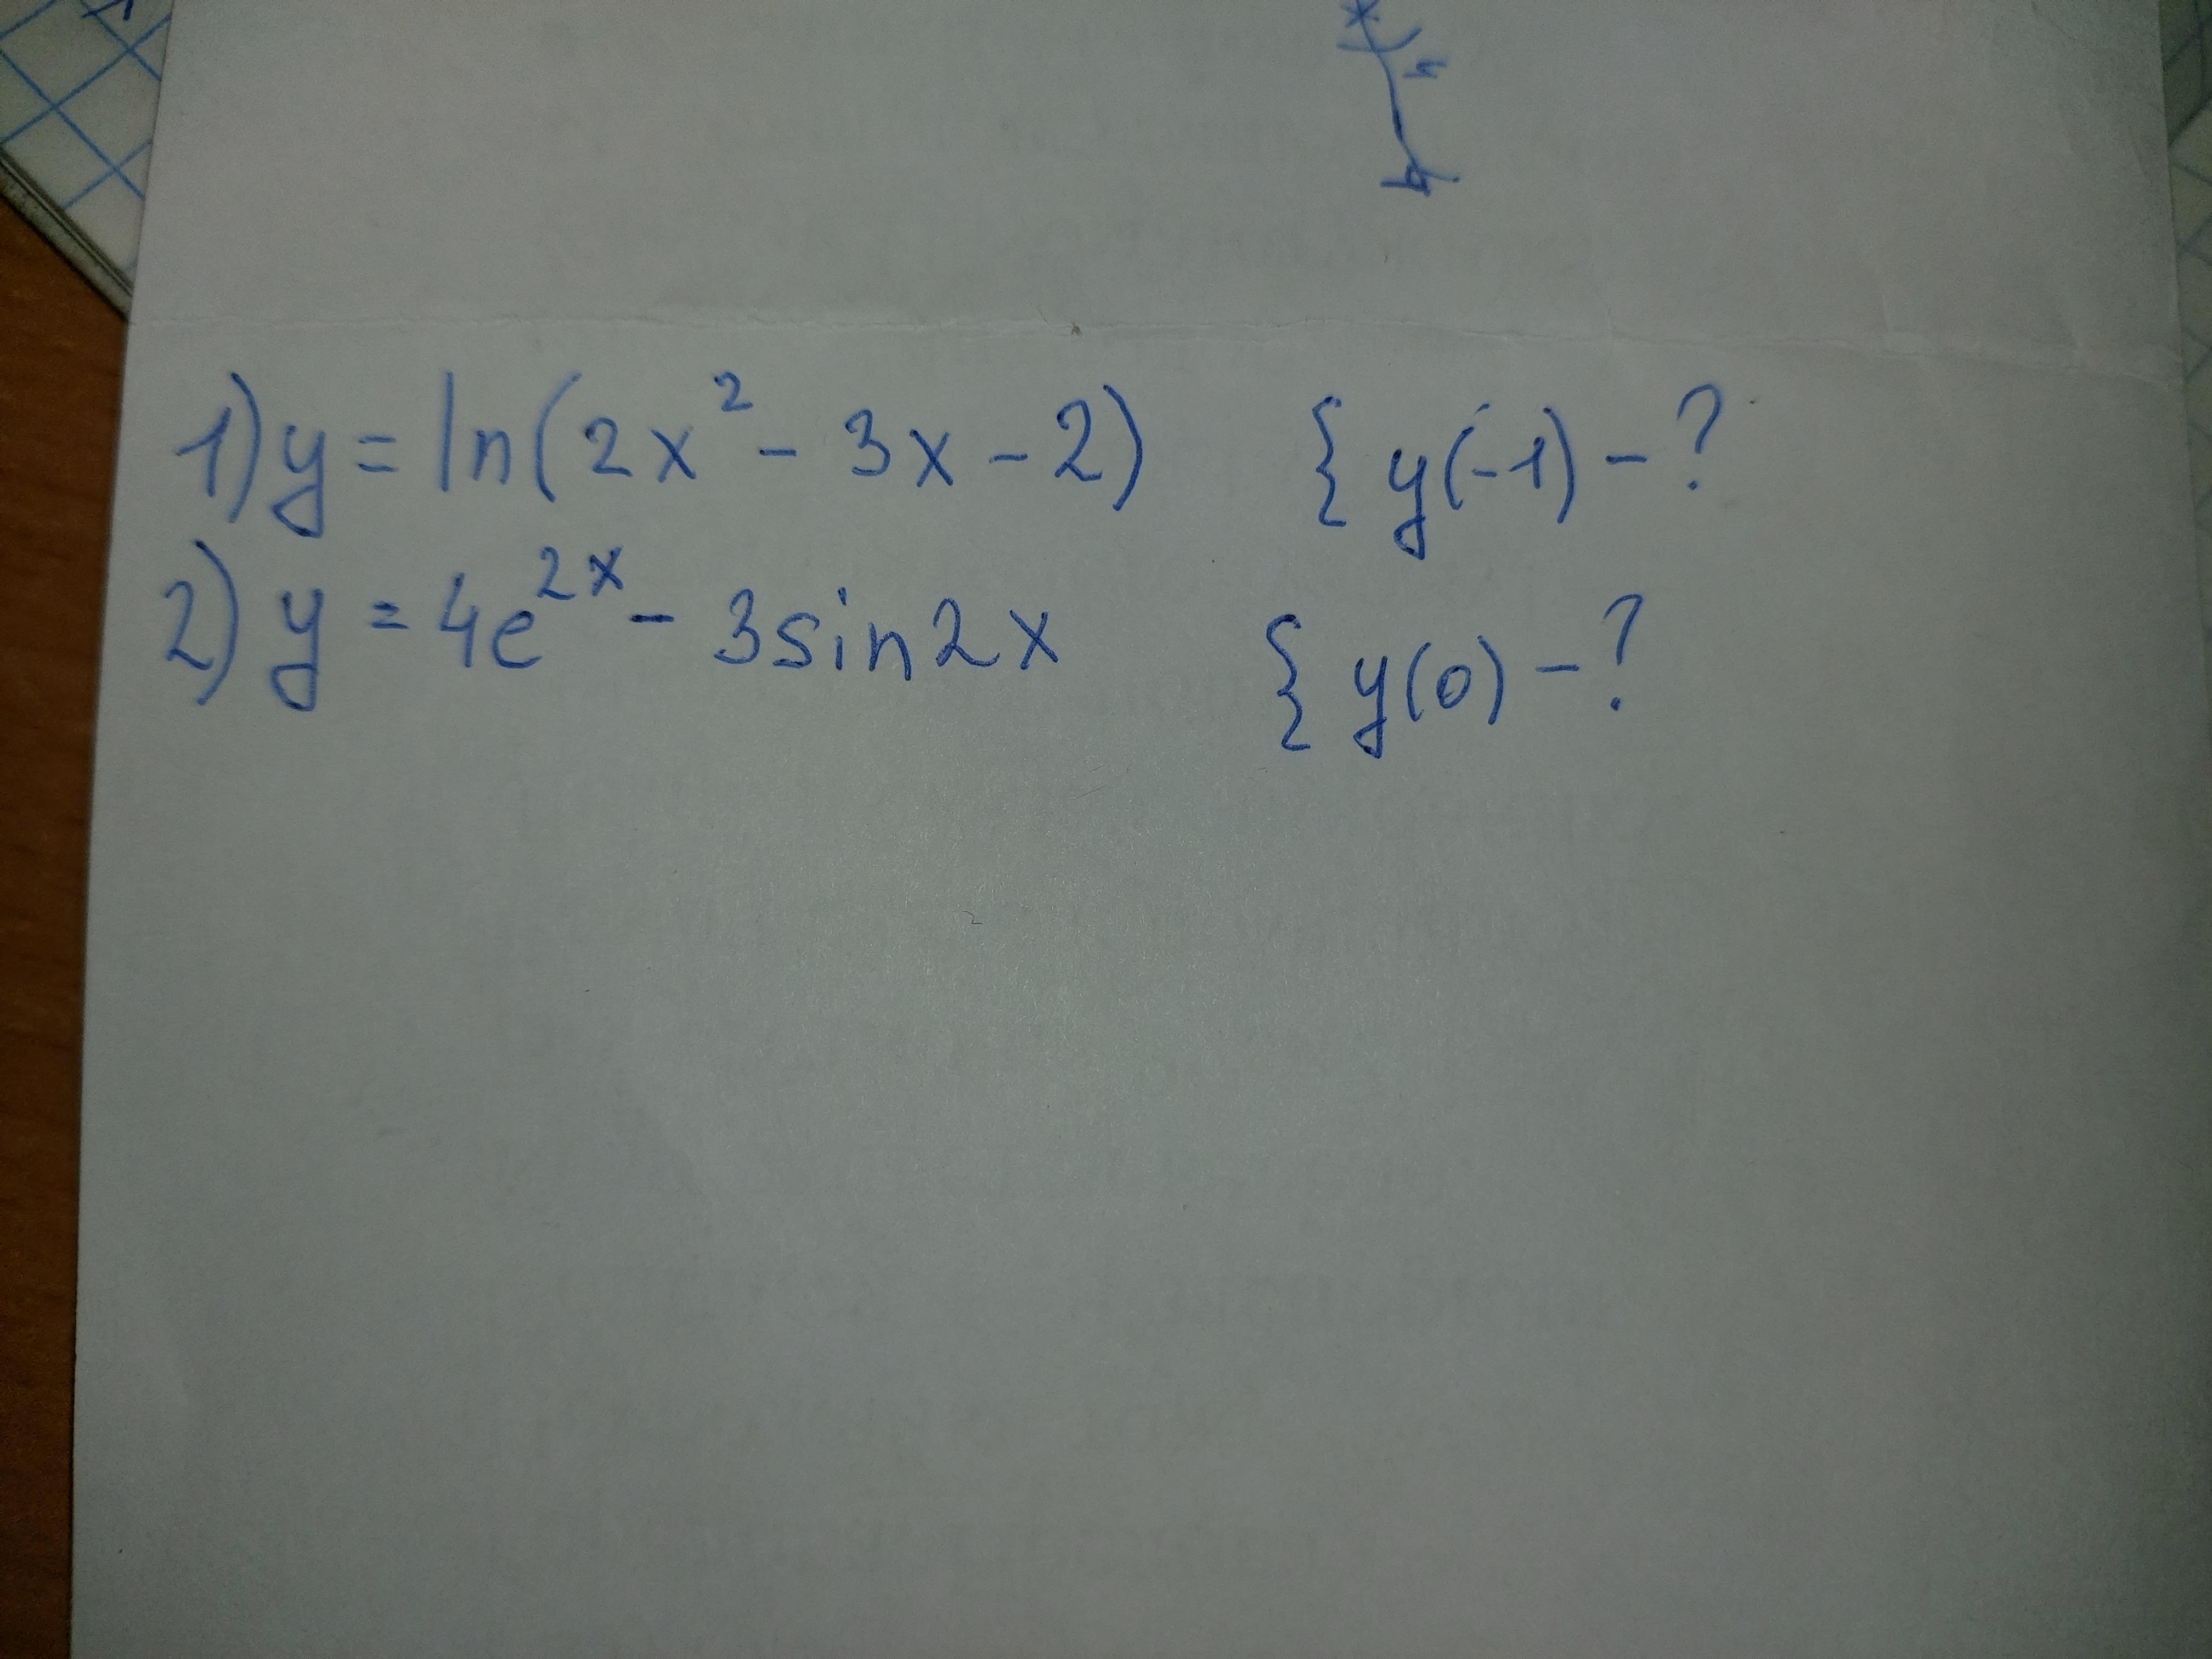 1) y = ln(2x² - 3x - 2) { y(-1) - ?
2) y = 4e²ˣ - 3sin2x { y(0) - ?